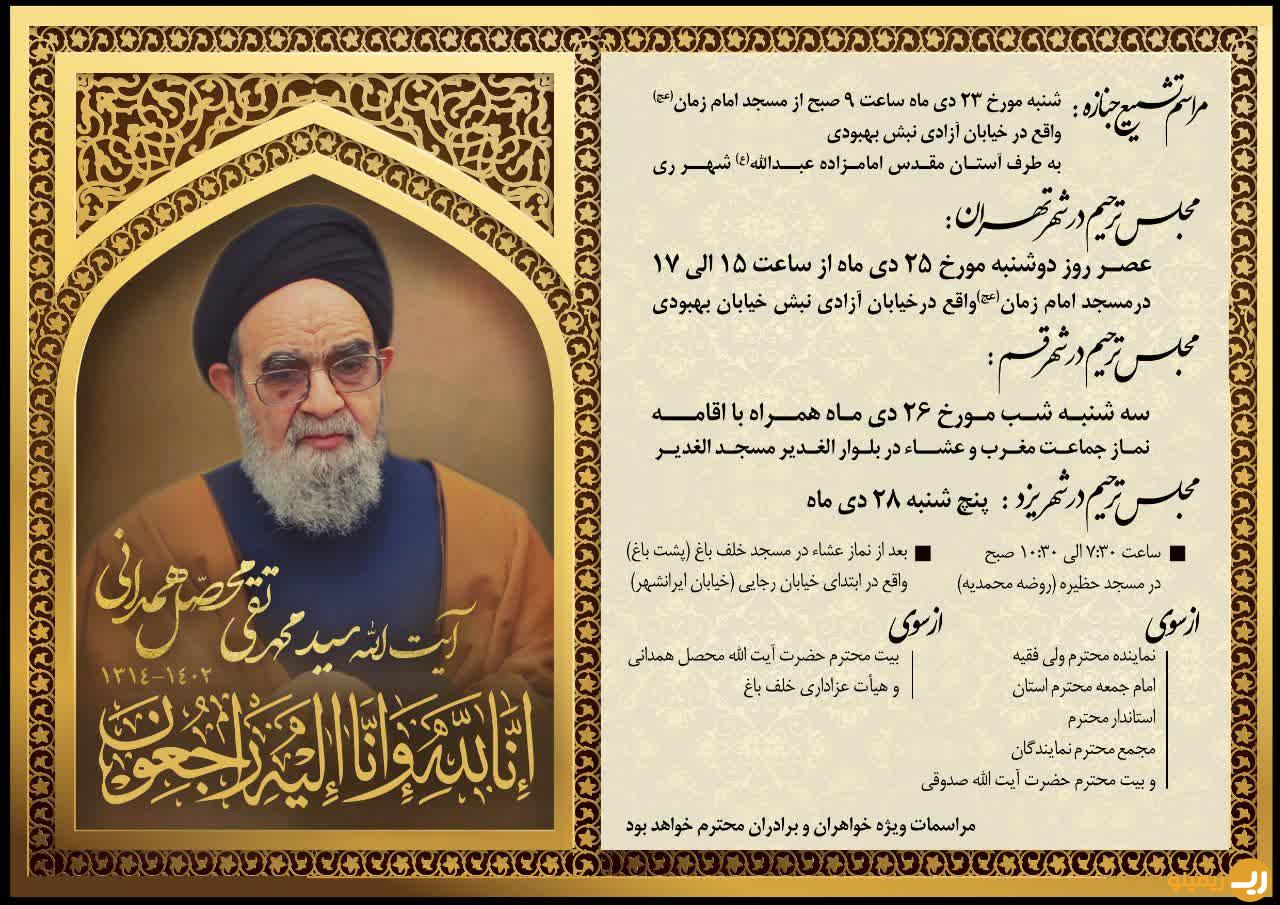 مراسم تشییع جنازه : شنبه مورخ ۲۳ دی ماه ساعت ۹ صبح از مسجد امام زمان(عج)
واقع در خیابان آزادی نبش بهبودی
به طرف آستان مقدس امامزاده عبدالله(ع) شهر ری
مجلس ترحیم در شهر تهران :
عصر روز دوشنبه مورخ ۲۵ دی ماه از ساعت ۱۵ الی ۱۷
درمسجد امام زمان(عج)واقع درخیابان آزادی نبش خیابان بهبودی
مجلس ترحیم در شهر قم :
سه شنبه شب مورخ ۲۶ دی ماه همراه با اقامه
نماز جماعت مغرب و عشاء در بلوار الغدیر مسجد الغدیر
مجلس ترحیم در شهر یزد : پنج شنبه ۲۸ دی ماه
ساعت ۷:۳۰ الی ۱۰:۳۰ صبح
در مسجد حظیره (روضه محمدیه)
بعد از نماز عشاء در مسجد خلف باغ (پشت باغ)
واقع در ابتدای خیابان رجایی (خیابان ایرانشهر)
ازسوی
نماینده محترم ولی فقیه
امام جمعه محترم استان
استاندار محترم
مجمع محترم نمایندگان
و بیت محترم حضرت آیت الله صدوقی
ازسوی
بیت محترم حضرت آیت الله محصل همدانی
و هیأت عزاداری خلف باغ
مراسمات ویژه خواهران و برادران محترم خواهد بود
آیت الله سید محمد تقی محصّل همدانی
۱۳۱۴-۱۴۰۲
إِنَّا لِلَّهِ وَإِنَّا إِلَيْهِ رَاجِعُونَ
ریـ زیسینو